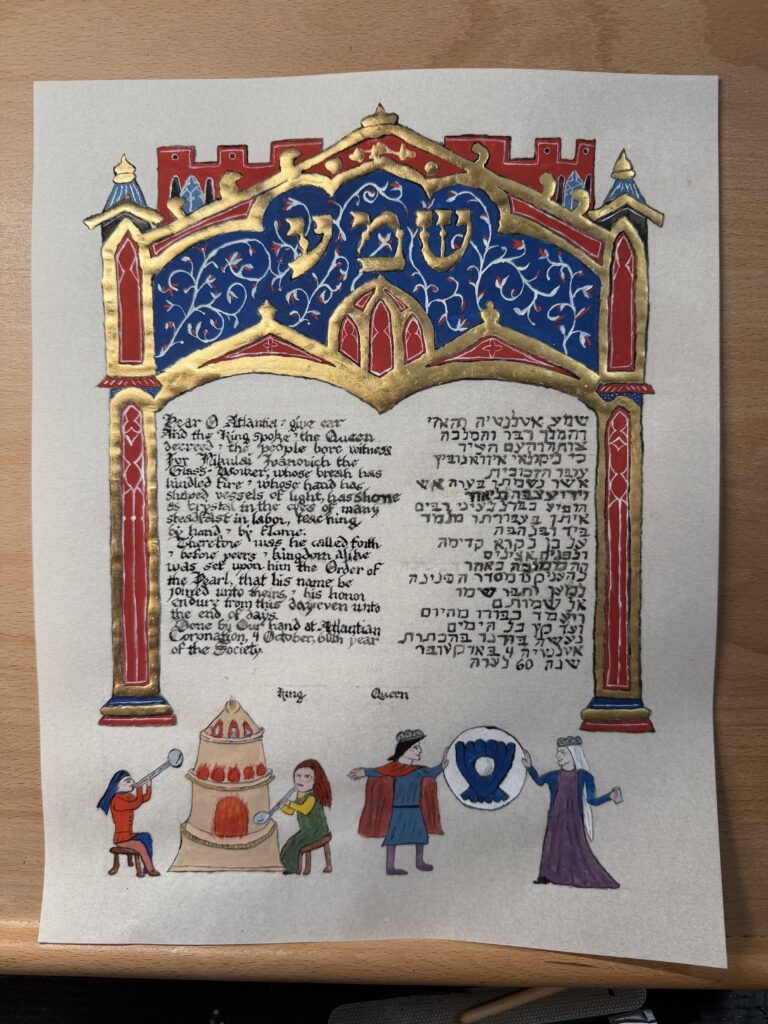 שמע
Hear O Atlantia, give ear
And the King spoke, the Queen
decreed, the people bore witness
For Nikulai Ivanovich the
Glass-Worker, whose breath has
kindled fire, whose hand has
shaped vessels of light, has shone
as crystal in the eyes of many
steadfast in labor, teaching
by hand, by flame.
Therefore was he called forth
before peers, kingdom alike
was set upon him the Order of
the Pearl, that his name be
joined unto theirs, his honor
endure from this day even unto
the end of days.
Done by Our hand at Atlantian
Coronation, 4 October, 60th year
of the Society.
שמע אטלנטיה
המלך דבר והמלכה
כי
עובד הזכוכית
אשר נשמתו בערה אש
וידו עצבה
הופיע לעיני רבים
איתן בעבודתו מלמד
ביד ובלהבה
על כן נקרא קדימה
מסדר הפנינה
שמו
אל שמותם
ויעמד כבודו מהיום
ועד קץ כל הימים
נעשה בידנו בהכתרת
אטלנטיה 4 באוקטובר
שנה 60
King Queen